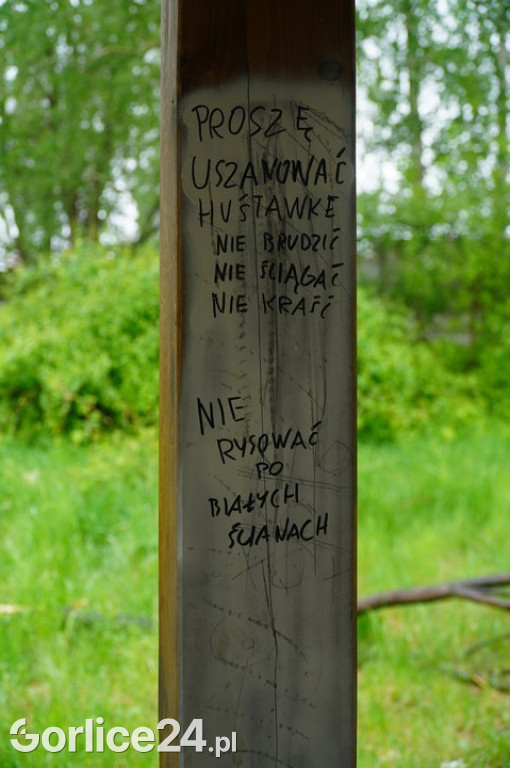 PROSZĘ
USZANOWAĆ
HUŚTAWKĘ
NIE BRUDZIĆ
NIE ŚCIĄGAĆ
NIE KRAŚĆ
NIE
RYSOWAĆ
PO
BIAŁYCH
ŚCIANACH
Gorlice24.pl